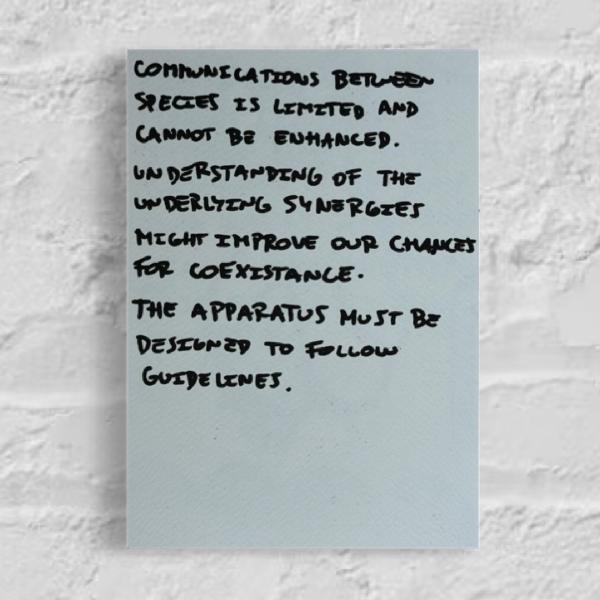 COMMUNICATIONS BETWEEN
SPECIES IS LIMITED AND
CANNOT BE ENHANCED.
UNDERSTANDING OF THE
UNDERLYING SYNERGIES
MIGHT IMPROVE OUR CHANCES
FOR COEXISTANCE.
THE APPARATUS MUST BE
DESIGNED TO FOLLOW
GUIDELINES.